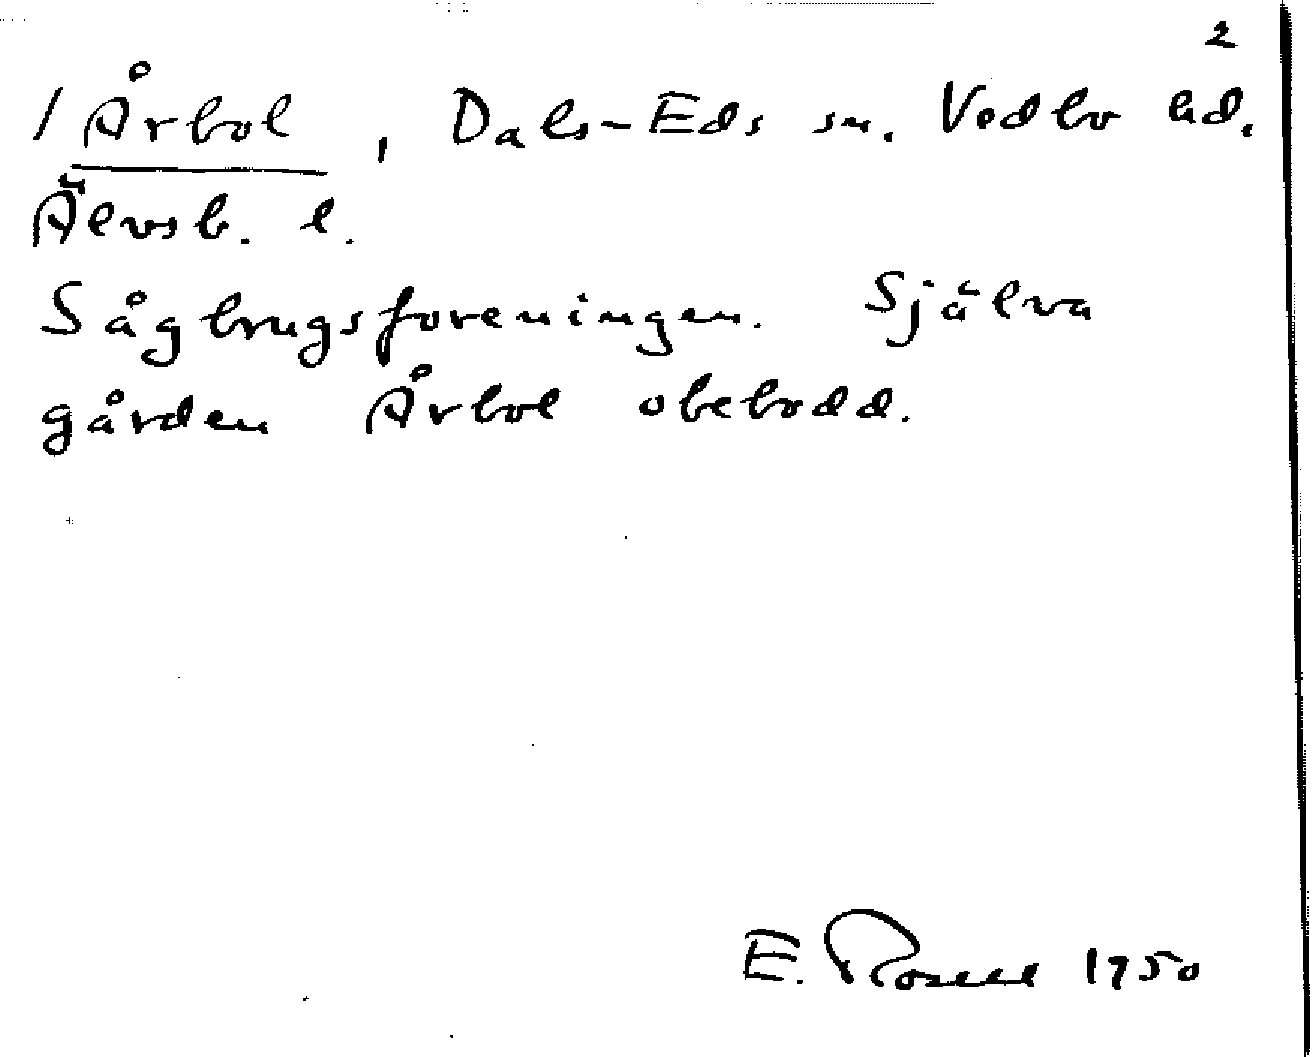 2
/ Årbol, Dals-Eds sn. Vedbo hd.
Älvsb. l.
Sågbrugsforeningen. Själva
gården Årbol obebodd.
E. Rosell 1950